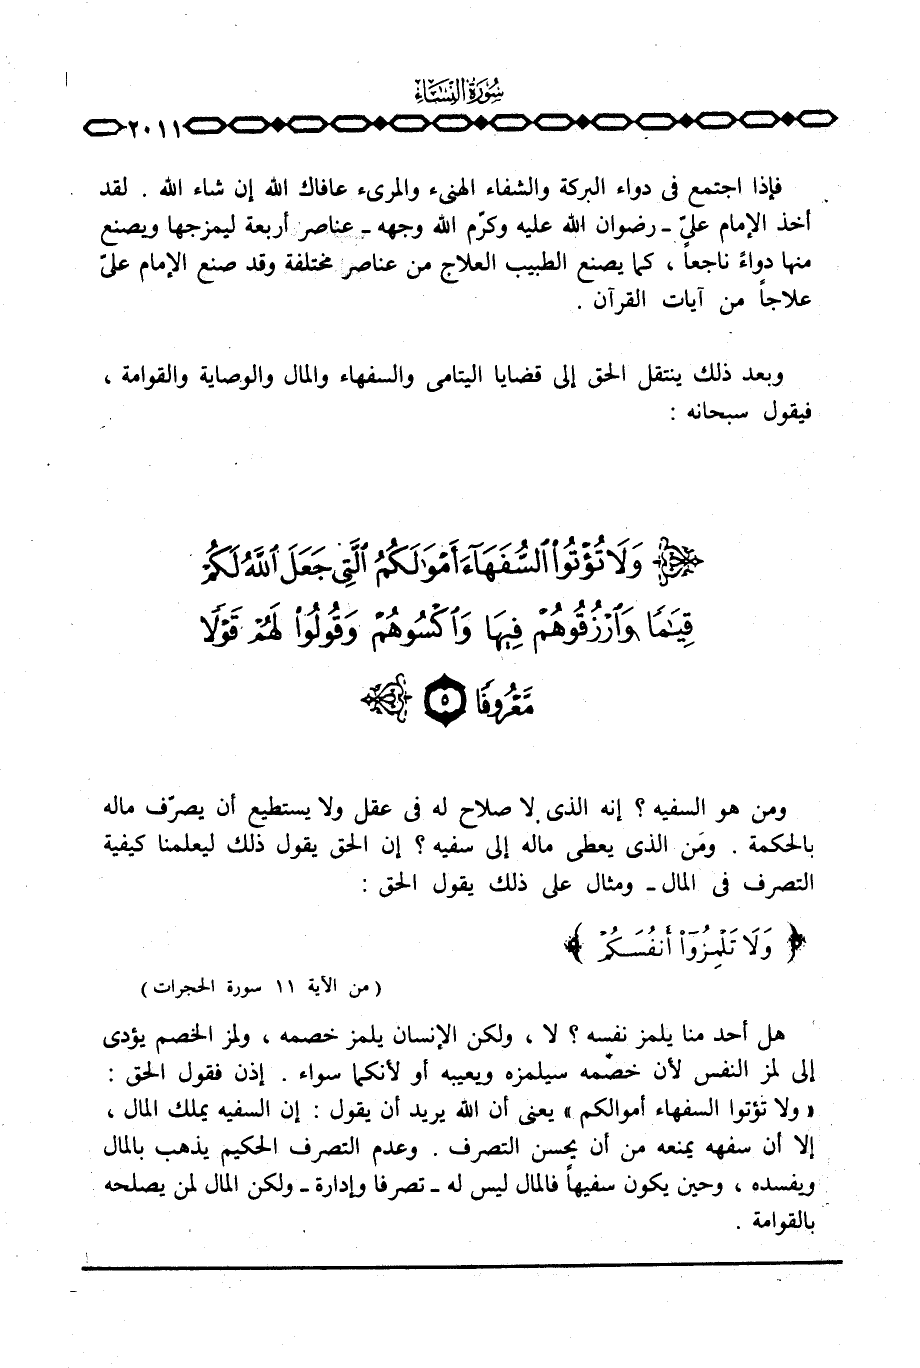 سُورَةُ النِّسَاءِ
٢٠١١
فإذا اجتمع فى دواء البركة والشفاء الهنىء والمرىء عافاك الله إن شاء الله . لقد
أخذ الإمام علىّ ـ رضوان الله عليه وكرّم الله وجهه ـ عناصر أربعة ليمزجها ويصنع
منها دواءً ناجعاً ، كما يصنع الطبيب العلاج من عناصر مختلفة وقد صنع الإمام علىّ
علاجاً من آيات القرآن .
وبعد ذلك ينتقل الحق إلى قضايا اليتامى والسفهاء والمال والوصاية والقوامة ،
فيقول سبحانه :
﴿ وَلَا تُؤْتُوا۟ ٱلسُّفَهَآءَ أَمْوَٰلَكُمُ ٱلَّتِى جَعَلَ ٱللَّهُ لَكُمْ
قِيَٰمًا وَٱرْزُقُوهُمْ فِيهَا وَٱكْسُوهُمْ وَقُولُوا۟ لَهُمْ قَوْلًا
مَّعْرُوفًا ٥ ﴾
ومن هو السفيه ؟ إنه الذى لا صلاح له فى عقل ولا يستطيع أن يصرّف ماله
بالحكمة . ومَن الذى يعطى ماله إلى سفيه ؟ إن الحق يقول ذلك ليعلمنا كيفية
التصرف فى المال ـ ومثال على ذلك يقول الحق :
﴿ وَلَا تَلْمِزُوٓا۟ أَنفُسَكُمْ ﴾
( من الآية ١١ سورة الحجرات )
هل أحد منا يلمز نفسه ؟ لا ، ولكن الإنسان يلمز خصمه ، ولمز الخصم يؤدى
إلى لمز النفس لأن خصمه سيلمزه ويعيبه أو لأنكما سواء . إذن فقول الحق :
« ولا تؤتوا السفهاء أموالكم » يعنى أن الله يريد أن يقول : إن السفيه يملك المال ،
إلا أن سفهه يمنعه من أن يحسن التصرف . وعدم التصرف الحكيم يذهب بالمال
ويفسده ، وحين يكون سفيهاً فالمال ليس له ـ تصرفا وإدارة ـ ولكن المال لمن يصلحه
بالقوامة .